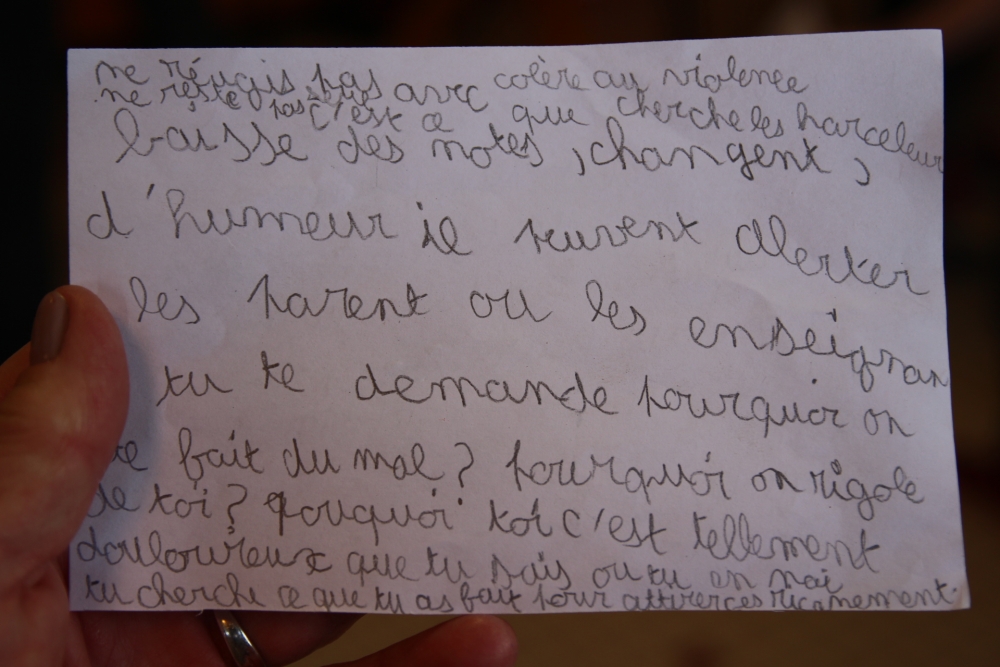 ne réagis pas avec colère au violence
ne reste pas seul c'est ce que cherche les harceleur
baisse des notes, changent,
d'humeur il peuvent alerter
les parent ou les enseignan
tu te demande pourquoi on
te fait du mal? pourquoi on rigole
de toi? pouquoi toi c'est tellement
douloureux que tu sais ou tu en
tu cherche ce que tu as fait pour attirer ces ricanement